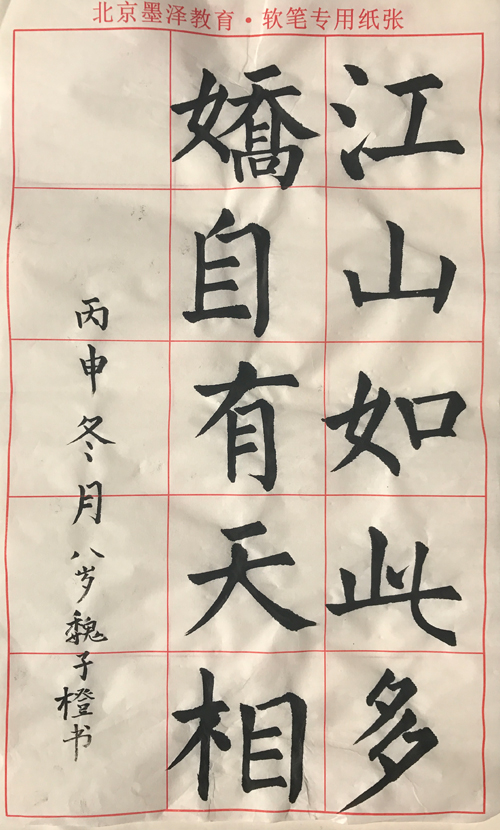 北京墨泽教育·软笔专用纸张
江山如此多
嬌自有天相
丙申冬月八岁魏子橙书